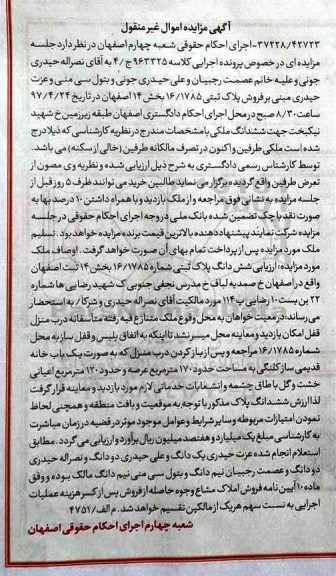 آگهی مزایده اموال غیر منقول
۳۷۲۲۸/۴۲۷۲۳-اجرای احکام حقوقی شعبه چهارم اصفهان در نظر دارد جلسه
مزایده ای در خصوص پرونده اجرایی کلاسه ۹۶۳۳۲۵ ج/۴ به آقای نصراله حیدری
جونی و علیه خانم عصمت رجبیان و علی حیدری جونی و بتول سی منی و عزت
حیدری مبنی بر فروش پلاک ثبتی ۱۶/۱۷۸۵ بخش ۱۴ اصفهان در تاریخ ۹۷/۴/۲۴
ساعت ۸/۳۰ صبح در محل اجرای احکام دادگستری اصفهان طبقه زیرزمین خ شهید
نیکبخت جهت ششدانگ ملکی با مشخصات مندرج در نظریه کارشناسی که ذیلا درج
شده است ملکی طرفین و اکنون در تصرف مالکانه طرفین (خالی از سکنه) می باشد.
توسط کارشناس رسمی دادگستری به شرح ذیل ارزیابی شده و نظریه وی مصون از
تعرض طرفین واقع گردیده برگزار می نماید طالبین خرید می توانند ظرف ۵ روز قبل از
جلسه مزایده به نشانی فوق مراجعه و از ملک بازدید و با همراه داشتن ۱۰ درصد بها به
صورت نقد یا چک تضمین شده بانک ملی در وجه اجرای احکام حقوقی در جلسه
مزایده شرکت نمایند پیشنهاد دهنده بالاترین قیمت برنده مزایده خواهد بود. تسلیم
ملک مورد مزایده پس از پرداخت تمام بهای آن صورت خواهد گرفت. اوصاف ملک
مورد مزایده: ارزیابی شش دانگ پلاک ثبتی شماره ۱۶/۱۷۸۵ بخش ۱۴ ثبت اصفهان
واقع در اصفهان خ صمدیه لباف خ مدرس نجفی جنوبی ک شهید رضایی ها شماره
۲۲ بن بست ۱۰ رضایی پ ۱۱۴ مورد مالکیت آقای نصراله حیدری و شرکا/ به استحضار
می رساند: در معیت خواهان به محل وقوع ملک متنازع فیه رفته متاسفانه درب منزل
قفل امکان بازدید و معاینه محل میسر نشد تا اینکه به اتفاق پلیس و قفل ساز به محل
شماره ۱۶/۱۷۸۵ مراجعه و پس از باز کردن درب منزل که به صورت یک باب خانه
قدیمی ساز کلنگی به مساحت حدود ۱۷۰ مترمربع عرصه و حدود ۱۲۰ مترمربع اعیانی
خشت و گل با طاق چشمه و انشعابات خدماتی لازم مورد بازدید و معاینه قرار گرفت
لذا ارزش ششدانگ پلاک مذکور با توجه به موقعیت و بافت منطقه و همچنین لحاظ
نمودن امتیازات مربوطه و سایر شرایط و عوامل موجود موثر در قضیه در زمان مباشرت
به کارشناسی مبلغ یک میلیارد و هفتصد میلیون ریال برآورد و ارزیابی می گردد. مطابق
استعلام انجام شده عزت حیدری یک دانگ و علی حیدری دو دانگ و نصراله حیدری
دو دانگ و عصمت رجبیان نیم دانگ و بتول سی منی نیم دانگ مالک بوده و وفق
ماده ۱۰ آیین نامه فروش املاک مشاع وجوه حاصله از فروش پس از کسر هزینه عملیات
اجرایی به نسبت سهم هر یک از مالکین تقسیم خواهد شد. م الف/۴۷۵۱
شعبه چهارم اجرای احکام حقوقی اصفهان